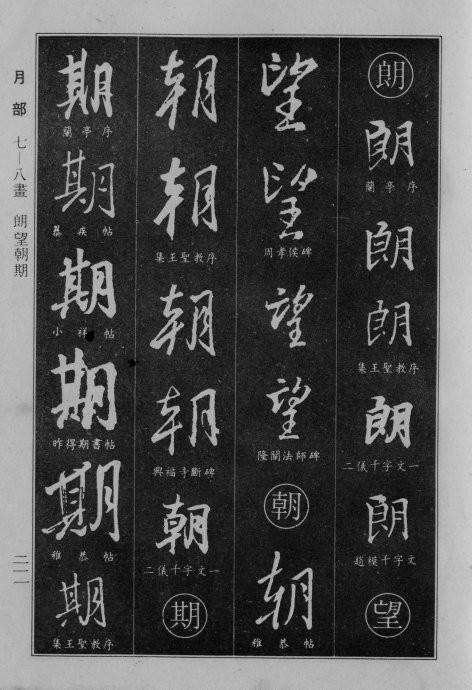 朗
朗
蘭亭序
朗
朗
集王聖教序
朗
二儀千字文一
朗
趙模千字文
望
望
望
周孝侯碑
望
望
隆闡法師碑
朝
朝
雅恭帖
朝
朝
集王聖教序
朝
朝
興福寺斷碑
朝
二儀千字文一
期
期
蘭亭序
期
疾帖
期
小祥帖
期
昨得期書帖
期
雅恭帖
期
集王聖教序
月部 七—八畫 朗望朝期
二一一